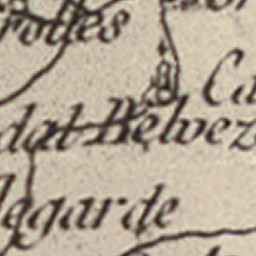 rodes
Ca
dat Belvez
legarde